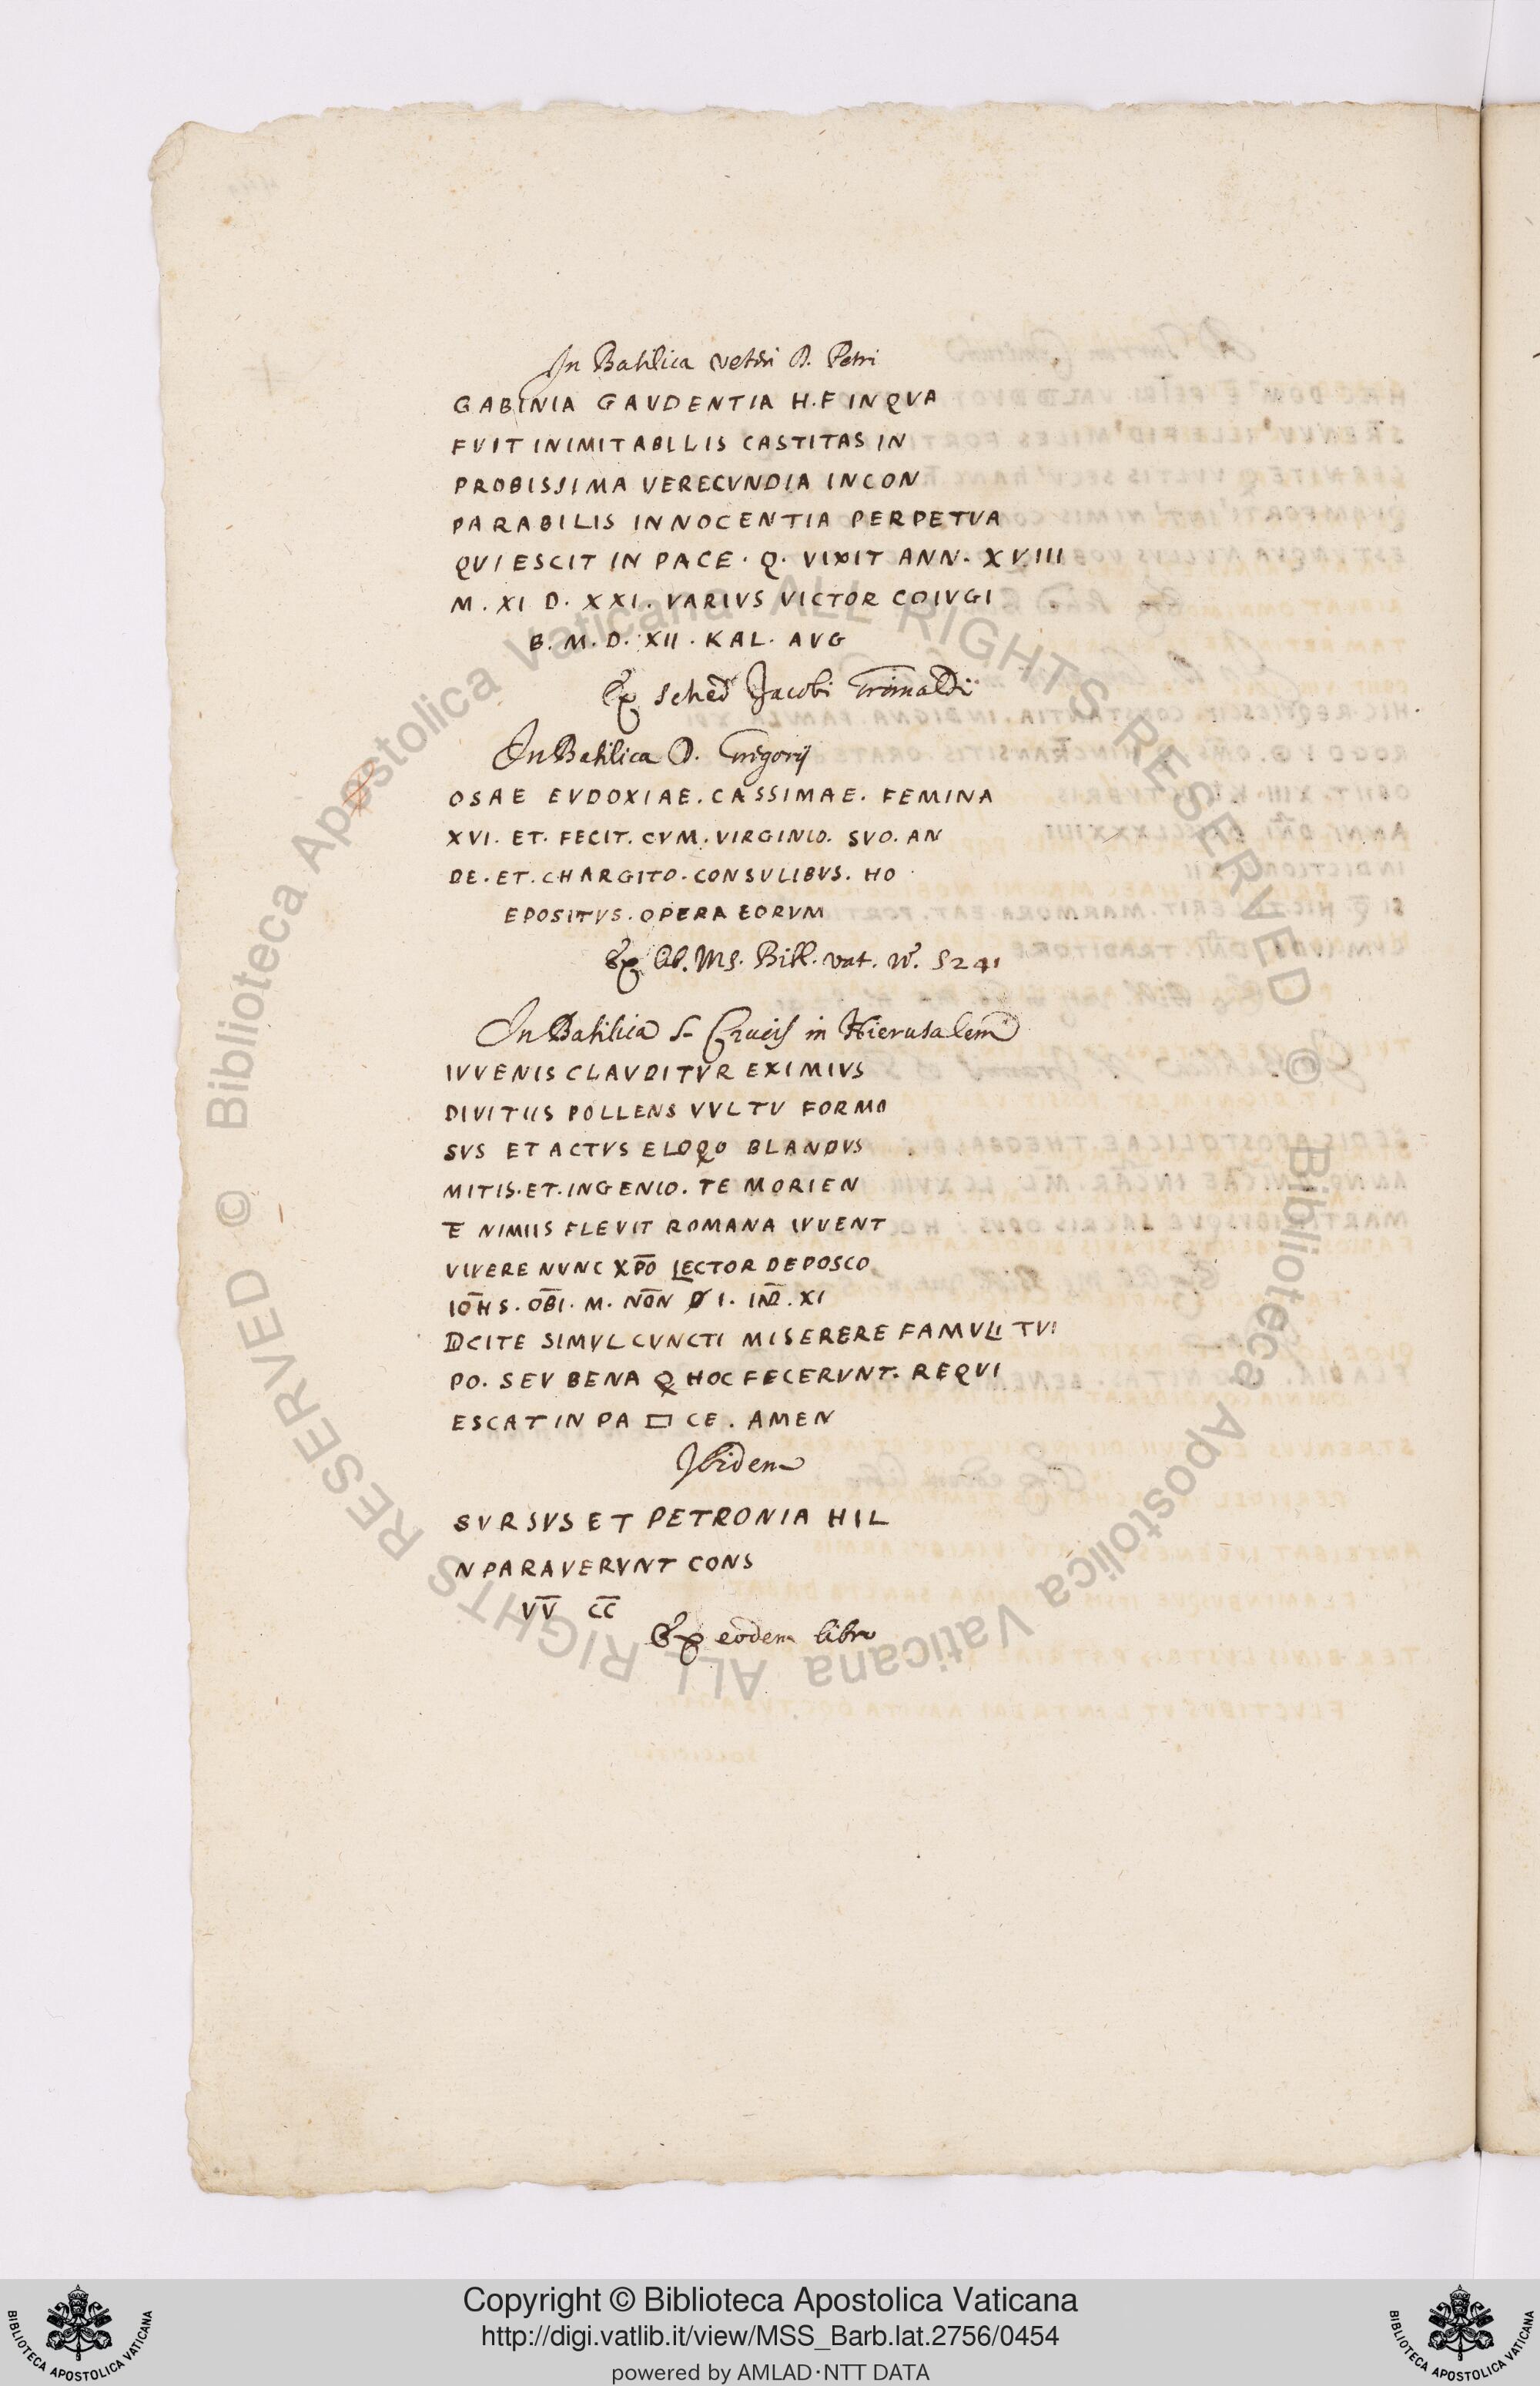 In Basilica veteri D. Petri
GABINIA GAVDENTIA H.F IN QVA
FVIT INIMITABILLIS CASTITAS IN
PROBISSIMA VERECVNDIA INCON
PARABILIS INNOCENTIA PERPETVA
QVIESCIT IN PACE. Q. VIXIT ANN. XVIII
M. XI D. XXI. VARIVS VICTOR COIVGI
B. M. D. XII. KAL. AVG
Ex sched Jacobi Grimaldi
In Basilica D. Gregorij
OSAE EVDOXIAE. CASSIMAE. FEMINA
XVI. ET. FECIT. CVM. VIRGINIO. SVO. AN
DE. ET. CHARGITO. CONSVLIBVS. HO
EPOSITVS. OPERA EORVM
Ex lib. Ms. Bibl. vat. n°. 5241
In Basilica S. Crucis in Hierusalem
IVVENIS CLAVDITVR EXIMIVS
DIVITIIS POLLENS VVLTV FORMO
SVS ET ACTVS ELOQO BLANDVS
MITIS. ET. INGENIO. TE MORIEN
TE NIMIIS FLEVIT ROMANA IVVENT
VIVERE NVNC XP̅O LECTOR DEPOSCO
IO̅HS. OB̅I. M. NO̅N D I. IN̅D. XI
DICITE SIMVL CVNCTI MISERERE FAMVLI TVI
PO. SEV BENA Q HOC FECERVNT. REQVI
ESCAT IN PA □ CE. AMEN
Ibidem
SVRSVS ET PETRONIA HIL
N PARAVERVNT CONS
V̅V̅ C̅C̅
Ex eodem libro
Copyright © Biblioteca Apostolica Vaticana
http://digi.vatlib.it/view/MSS_Barb.lat.2756/0454
powered by AMLAD·NTT DATA
BIBLIOTECA APOSTOLICA VATICANA
BIBLIOTECA APOSTOLICA VATICANA
© Biblioteca Apostolica Vaticana ALL RIGHTS RESERVED
© Biblioteca Apostolica Vaticana ALL RIGHTS RESERVED